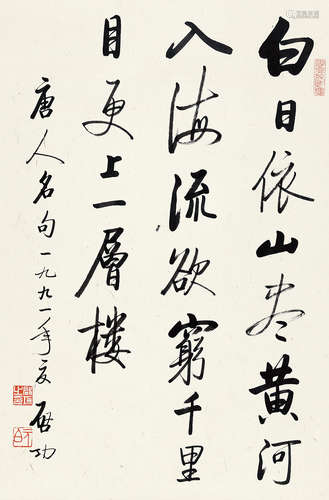 白日依山盡黄河
入海流欲窮千里
目更上一層樓
唐人名句一九九一年夏 啓功